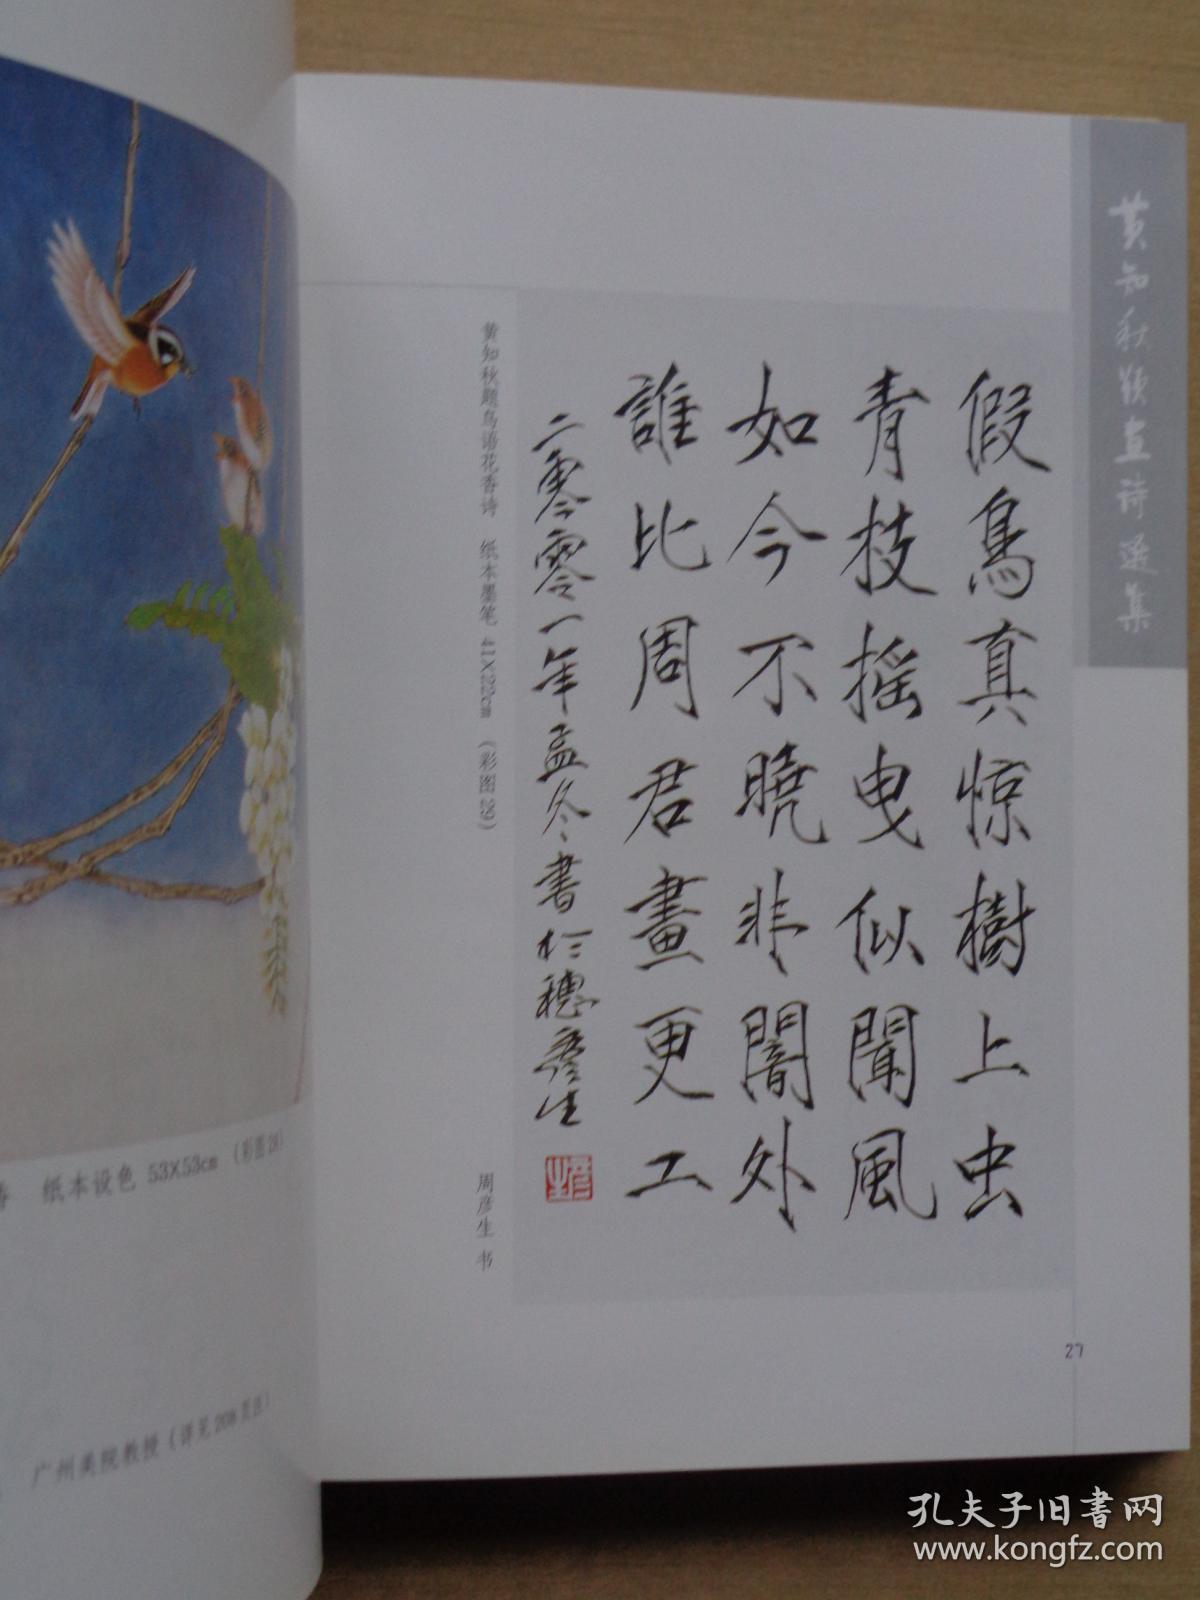 黄知秋题画诗选集
假鳥真惊樹上虫
青枝摇曳似聞風
如今不曉非闇外
誰比周君畫更工
二零零一年孟冬書於穗彦生
黄知秋题鸟语花香诗 纸本墨笔 41X22cm (彩图29)
周彦生 书
27
香 纸本设色 53X53cm (彩图28)
广州美院教授(详见208页注)
孔夫子旧书网
www.kongfz.com